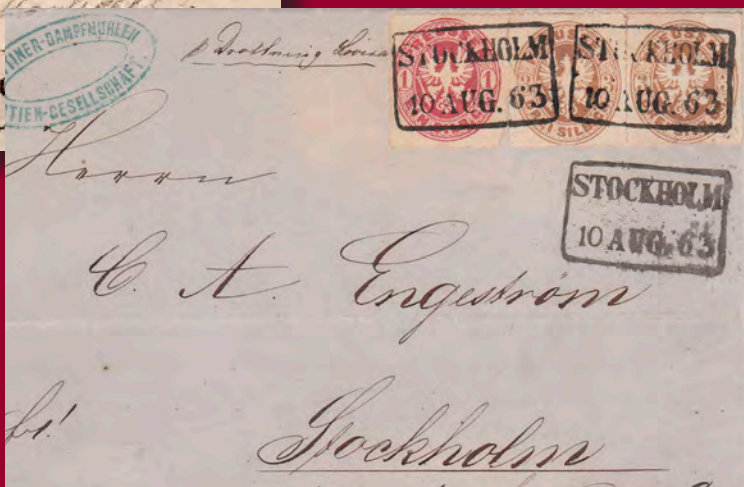 INER-DAMPFMÜHLEN
TIEN-GESELLSCHAFT
p Drottning Lovisa
STOCKHOLM
10 AUG. 63
STOCKHOLM
10 AUG. 63
STOCKHOLM
10 AUG. 63
Herrn
C. A. Engeström
Stockholm